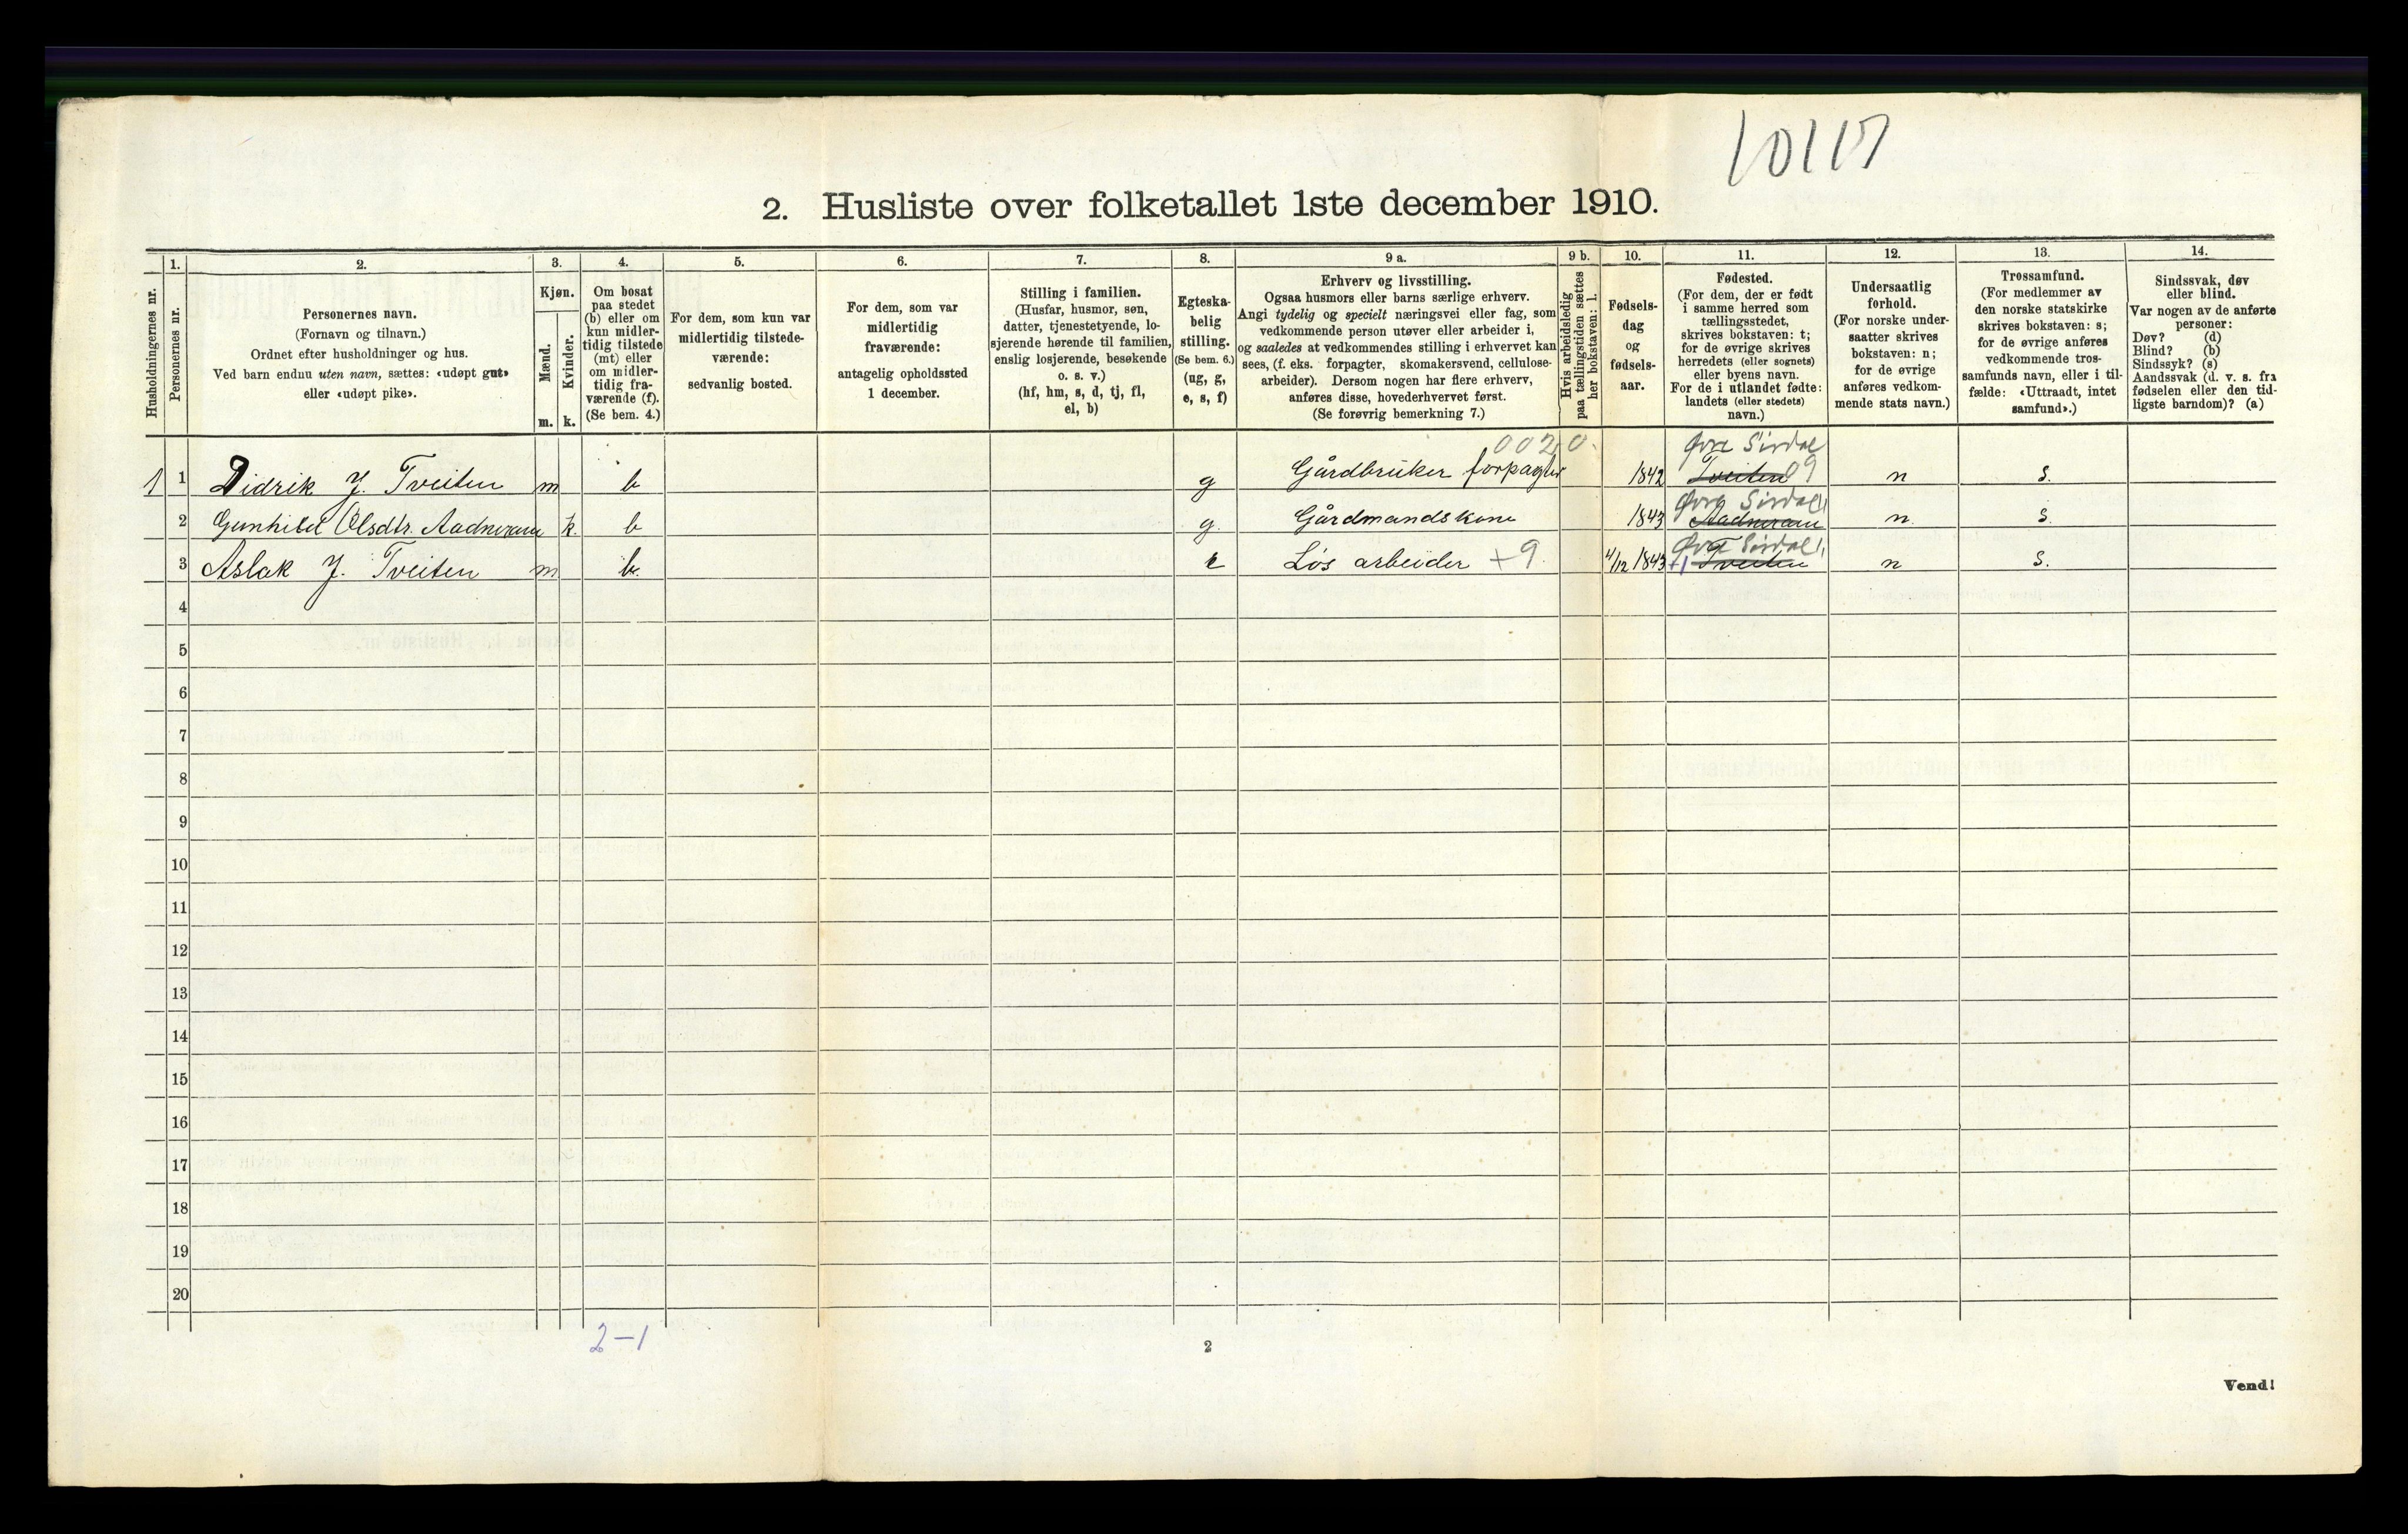 10117
2. Husliste over folketallet 1ste december 1910.
Husholdningernes nr.
1.
Personernes nr.
2.
Personernes navn.
(Fornavn og tilnavn.)
Ordnet efter husholdninger og hus.
Ved barn endnu uten navn, sættes: «udøpt gut»
eller «udøpt pike».
3.
Kjøn.
Mænd.
Kvinder.
m. k.
4.
Om bosat
paa stedet
(b) eller om
kun midler-
tidig tilstede
(mt) eller
om midler-
tidig fra-
værende (f).
(Se bem. 4.)
5.
For dem, som kun var
midlertidig tilstede-
værende:
sedvanlig bosted.
6.
For dem, som var
midlertidig
fraværende:
antagelig opholdssted
1 december.
7.
Stilling i familien.
(Husfar, husmor, søn,
datter, tjenestetyende, lo-
sjerende hørende til familien,
enslig losjerende, besøkende
o. s. v.)
(hf, hm, s, d, tj, fl,
el, b)
8.
Egteska-
belig
stilling.
(Se bem. 6.)
(ug, g,
e, s, f)
9 a.
Erhverv og livsstilling.
Ogsaa husmors eller barns særlige erhverv.
Angi tydelig og specielt næringsvei eller fag, som
vedkommende person utøver eller arbeider i,
og saaledes at vedkommendes stilling i erhvervet kan
sees, (f. eks. forpagter, skomakersvend, cellulose-
arbeider). Dersom nogen har flere erhverv,
anføres disse, hovederhvervet først.
(Se forøvrig bemerkning 7.)
9 b.
Hvis arbeidsledig
paa tællingstiden sættes
her bokstaven: l.
10.
Fødsels-
dag
og
fødsels-
aar.
11.
Fødested.
(For dem, der er født
i samme herred som
tællingsstedet,
skrives bokstaven: t;
for de øvrige skrives
herredets (eller sognets)
eller byens navn.
For de i utlandet fødte:
landets (eller stedets)
navn.)
12.
Undersaatlig
forhold.
(For norske under-
saatter skrives
bokstaven: n;
for de øvrige
anføres vedkom-
mende stats navn.)
13.
Trossamfund.
(For medlemmer av
den norske statskirke
skrives bokstaven: s;
for de øvrige anføres
vedkommende tros-
samfunds navn, eller i til-
fælde: «Uttraadt, intet
samfund».)
14.
Sindssvak, døv
eller blind.
Var nogen av de anførte
personer:
Døv? (d)
Blind? (b)
Sindssyk? (s)
Aandssvak (d. v. s. fra
fødselen eller den tid-
ligste barndom)? (a)
0020. Øvre Sirdal
1 1 Didrik J. Tveiten m b g Gårdbruker forpagter 1842 Tveiten 09 n s.
Øvre Sirdal
2 Gunhild Olsdtr. Aadneram k. b g. Gårdmandskone 1843 Aadneram n. s.
Øvre Sirdal
3 Aslak J. Tveiten m b. e Løs arbeider +9. 4/12 1843 +1 Tveiten n s.
4
5
6
7
8
9
10
11
12
13
14
15
16
17
18
19
20
2-1
2
Vend!